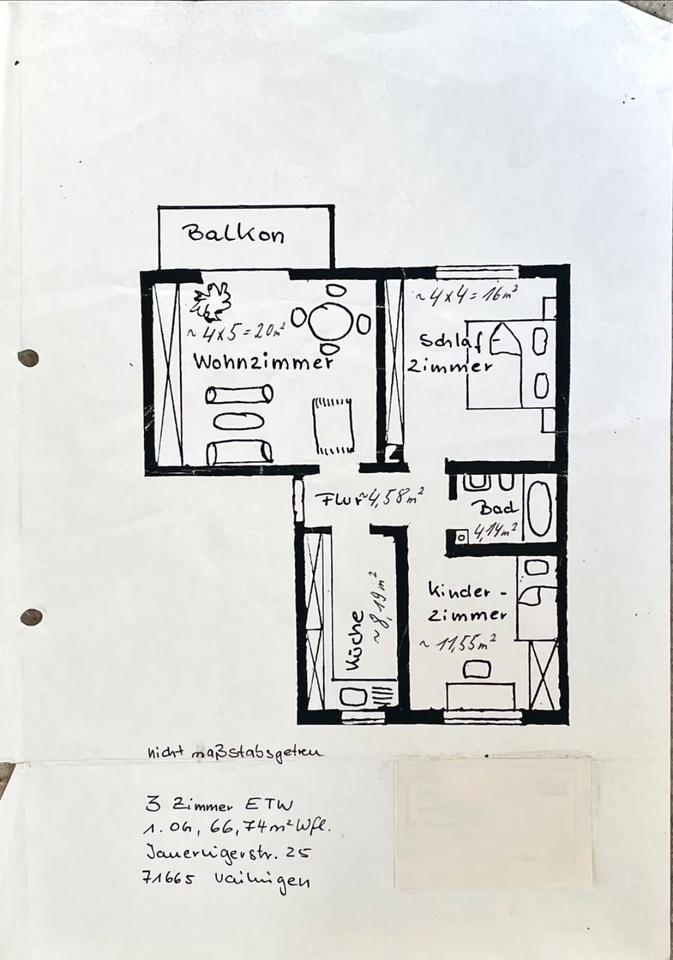 Balkon
~ 4x5 = 20m²
Wohnzimmer
~ 4x4 = 16m²
Schlaf
zimmer
Flur ~4,58m²
Bad
4,14m²
Küche
~ 8,19m²
Kinder-
zimmer
~ 11,55m²
nicht maßstabsgetreu
3 Zimmer ETW
1. OG, 66,74m² Wfl.
25
71665 Vaihingen